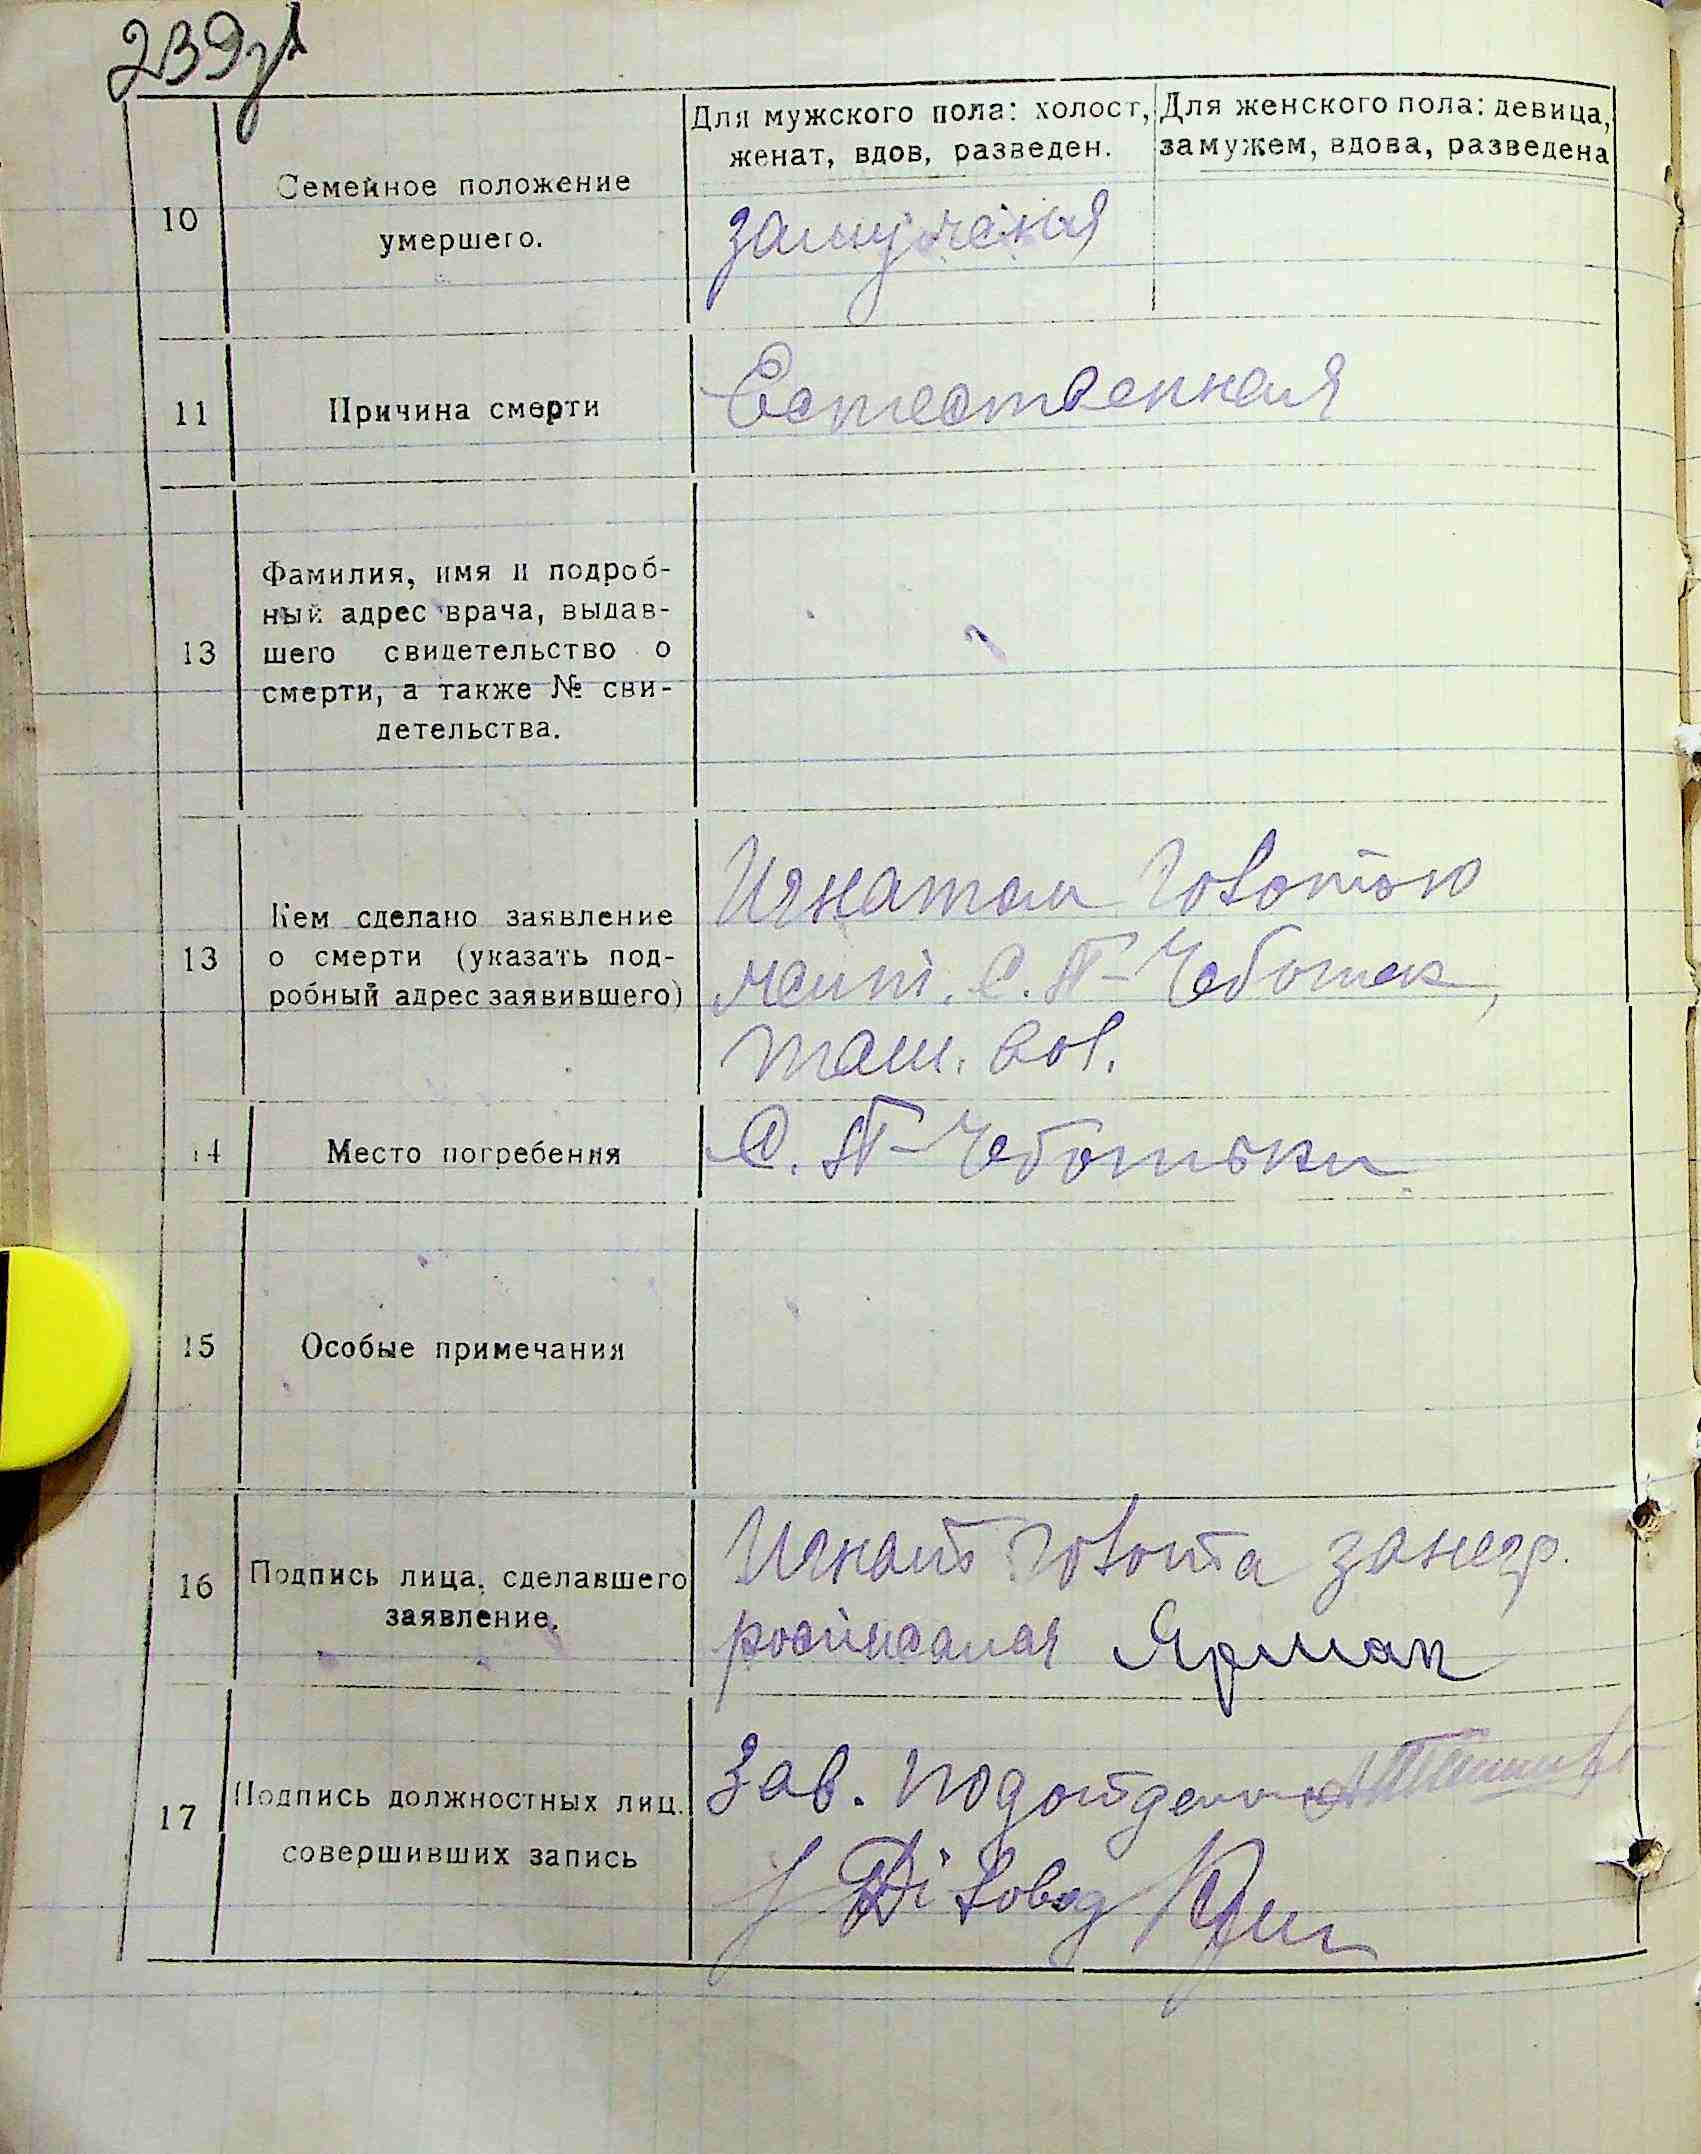 239
Для мужского пола: холост,
женат, вдов, разведен.
Для женского пола: девица,
замужем, вдова, разведена
10
Семейное положение
умершего.
замужная
11
Причина смерти
Естественная
13
Фамилия, имя и подроб-
ный адрес врача, выдав-
шего свидетельство о
смерти, а также № сви-
детельства.
13
Кем сделано заявление
о смерти (указать под-
робный адрес заявившего)
Игнатом Говотою
жит. С. П-Чеботьк,
таш. вол.
14
Место погребения
С. П-Чеботьки
15
Особые примечания
16
Подпись лица, сделавшего
заявление.
Игнат Говота занегр.
росписался Ярмак
17
Подпись должностных лиц,
совершивших запись
Зав. Подотдела
Діловод